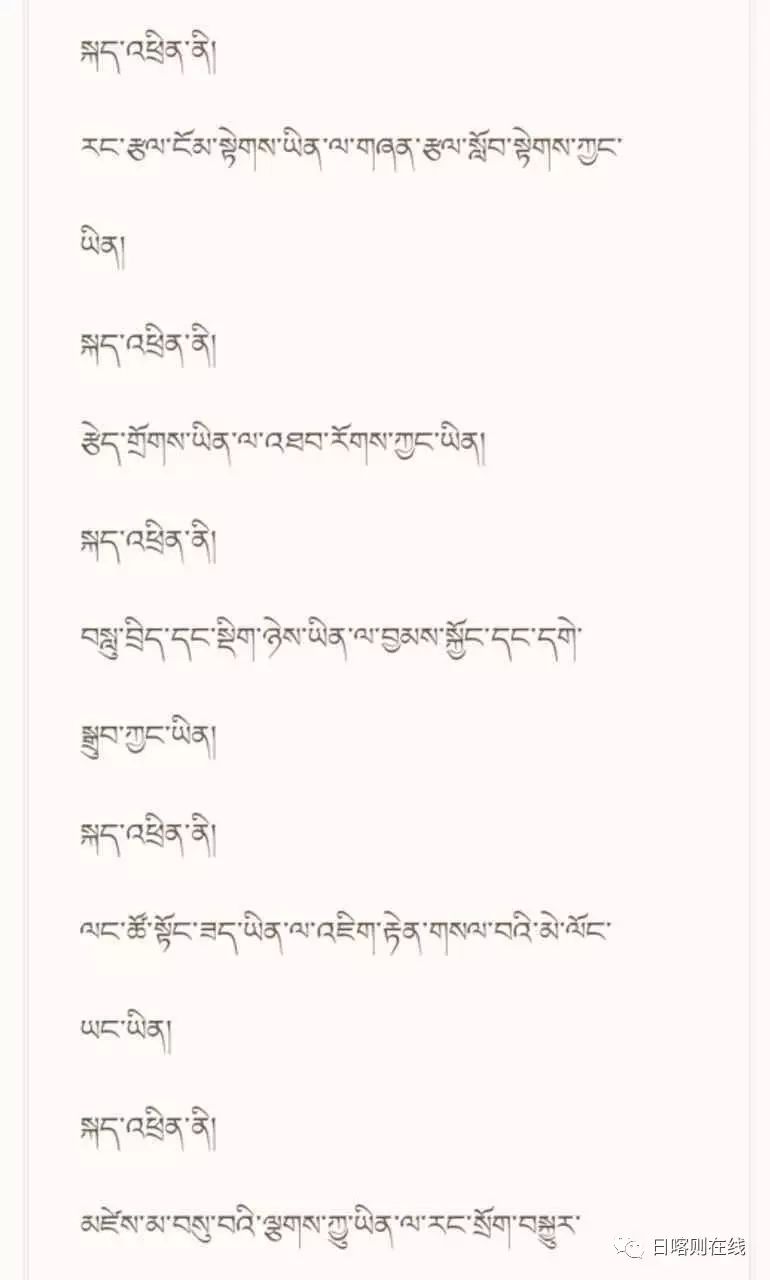 སྐད་འཕྲིན་ནི།
རང་རྩལ་ངོམ་སྟེགས་ཡིན་ལ་གཞན་རྩལ་སློབ་སྟེགས་ཀྱང་
ཡིན།
སྐད་འཕྲིན་ནི།
རྩེད་གྲོགས་ཡིན་ལ་འཐབ་རོགས་ཀྱང་ཡིན།
སྐད་འཕྲིན་ནི།
བསླུ་བྲིད་དང་སྡིག་ཉེས་ཡིན་ལ་བྱམས་སྐྱོང་དང་དགེ་
སྒྲུབ་ཀྱང་ཡིན།
སྐད་འཕྲིན་ནི།
ལང་ཚོ་སྟོང་ཟད་ཡིན་ལ་འཇིག་རྟེན་གསལ་བའི་མེ་ལོང་
ཡང་ཡིན།
སྐད་འཕྲིན་ནི།
མཛེས་མ་བསུ་བའི་ལྕགས་ཀྱུ་ཡིན་ལ་རང་སྲོག་བསྐྱུར་
日喀则在线